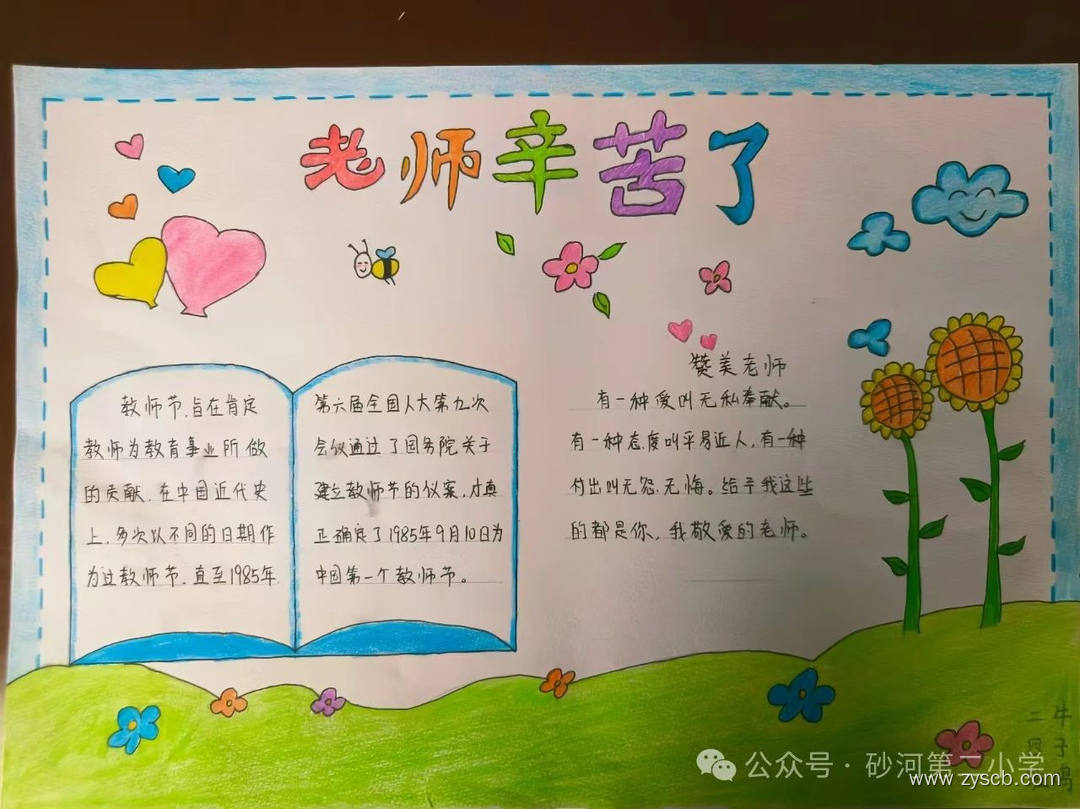 老师辛苦了
教师节,旨在肯定
教师为教育事业所做
的贡献.在中国近代史
上,多次以不同的日期作
为过教师节.直至1985年.
第六届全国人大第九次
会议通过了国务院关于
建立教师节的议案,才真
正确定了1985年9月10日为
中国第一个教师节。
赞美老师
有一种爱叫无私奉献。
有一种态度叫平易近人,有一种
付出叫无怨.无悔。给予我这些
的都是你,我敬爱的老师。
公众号·砂河第二小学
www.zyscb.com